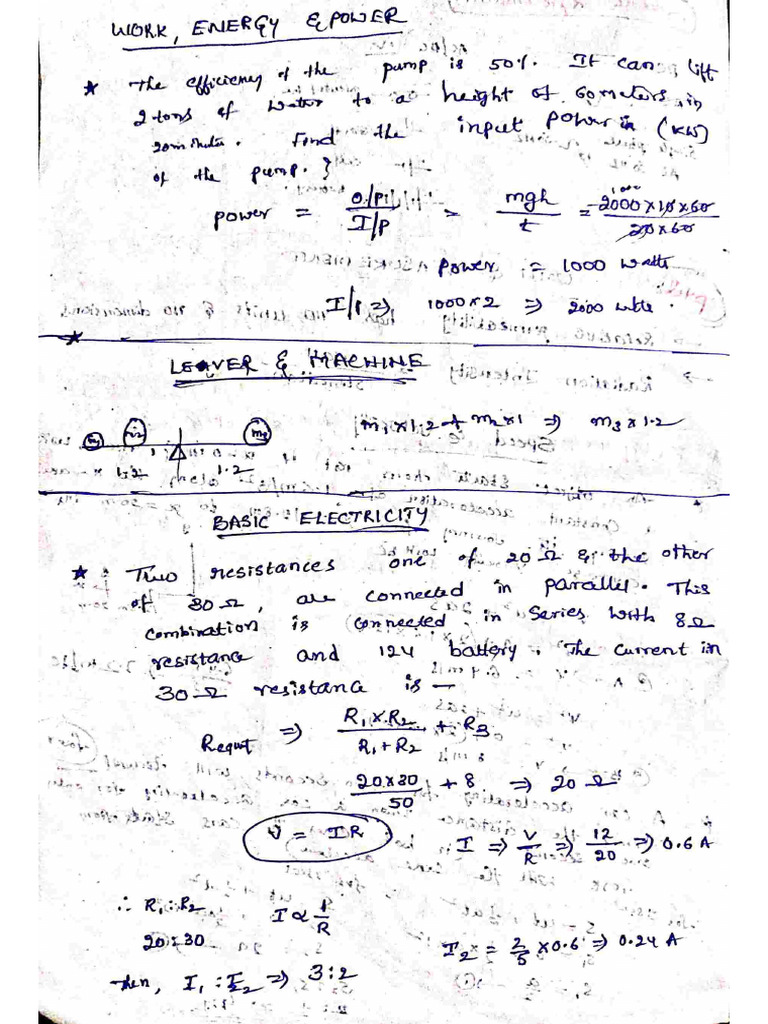 WORK, ENERGY & POWER
* The efficiency of the pump is 50%. It can lift
2 tons of water to a height of 60 meters in
20 minutes. Find the input power in (KW)
of the pump. }
power = O/P / I/P = mgh / t = 2000 x 10 x 60 / 20 x 60
1000
Power = 1000 watts
I/P => 1000 x 2 => 2000 watts.
LEAVER & MACHINE
m1 m2 m3 m1 x 1.2 + m2 x 1 => m3 x 1.2
1.2 1.2
BASIC ELECTRICITY
* Two resistances one of 20 Ω & the other
of 30 Ω, are connected in parallel. This
combination is connected in series with 8 Ω
resistance and 12V battery. The current in
30 Ω resistance is —
Requt => R1 x R2 / R1 + R2 + R3
20 x 30 / 50 + 8 => 20 Ω
V = IR I => V/R => 12/20 => 0.6 A
∴ R1 : R2 I ∝ 1/R
20 : 30 I2 = 2/5 x 0.6 => 0.24 A
Then, I1 : I2 => 3:2